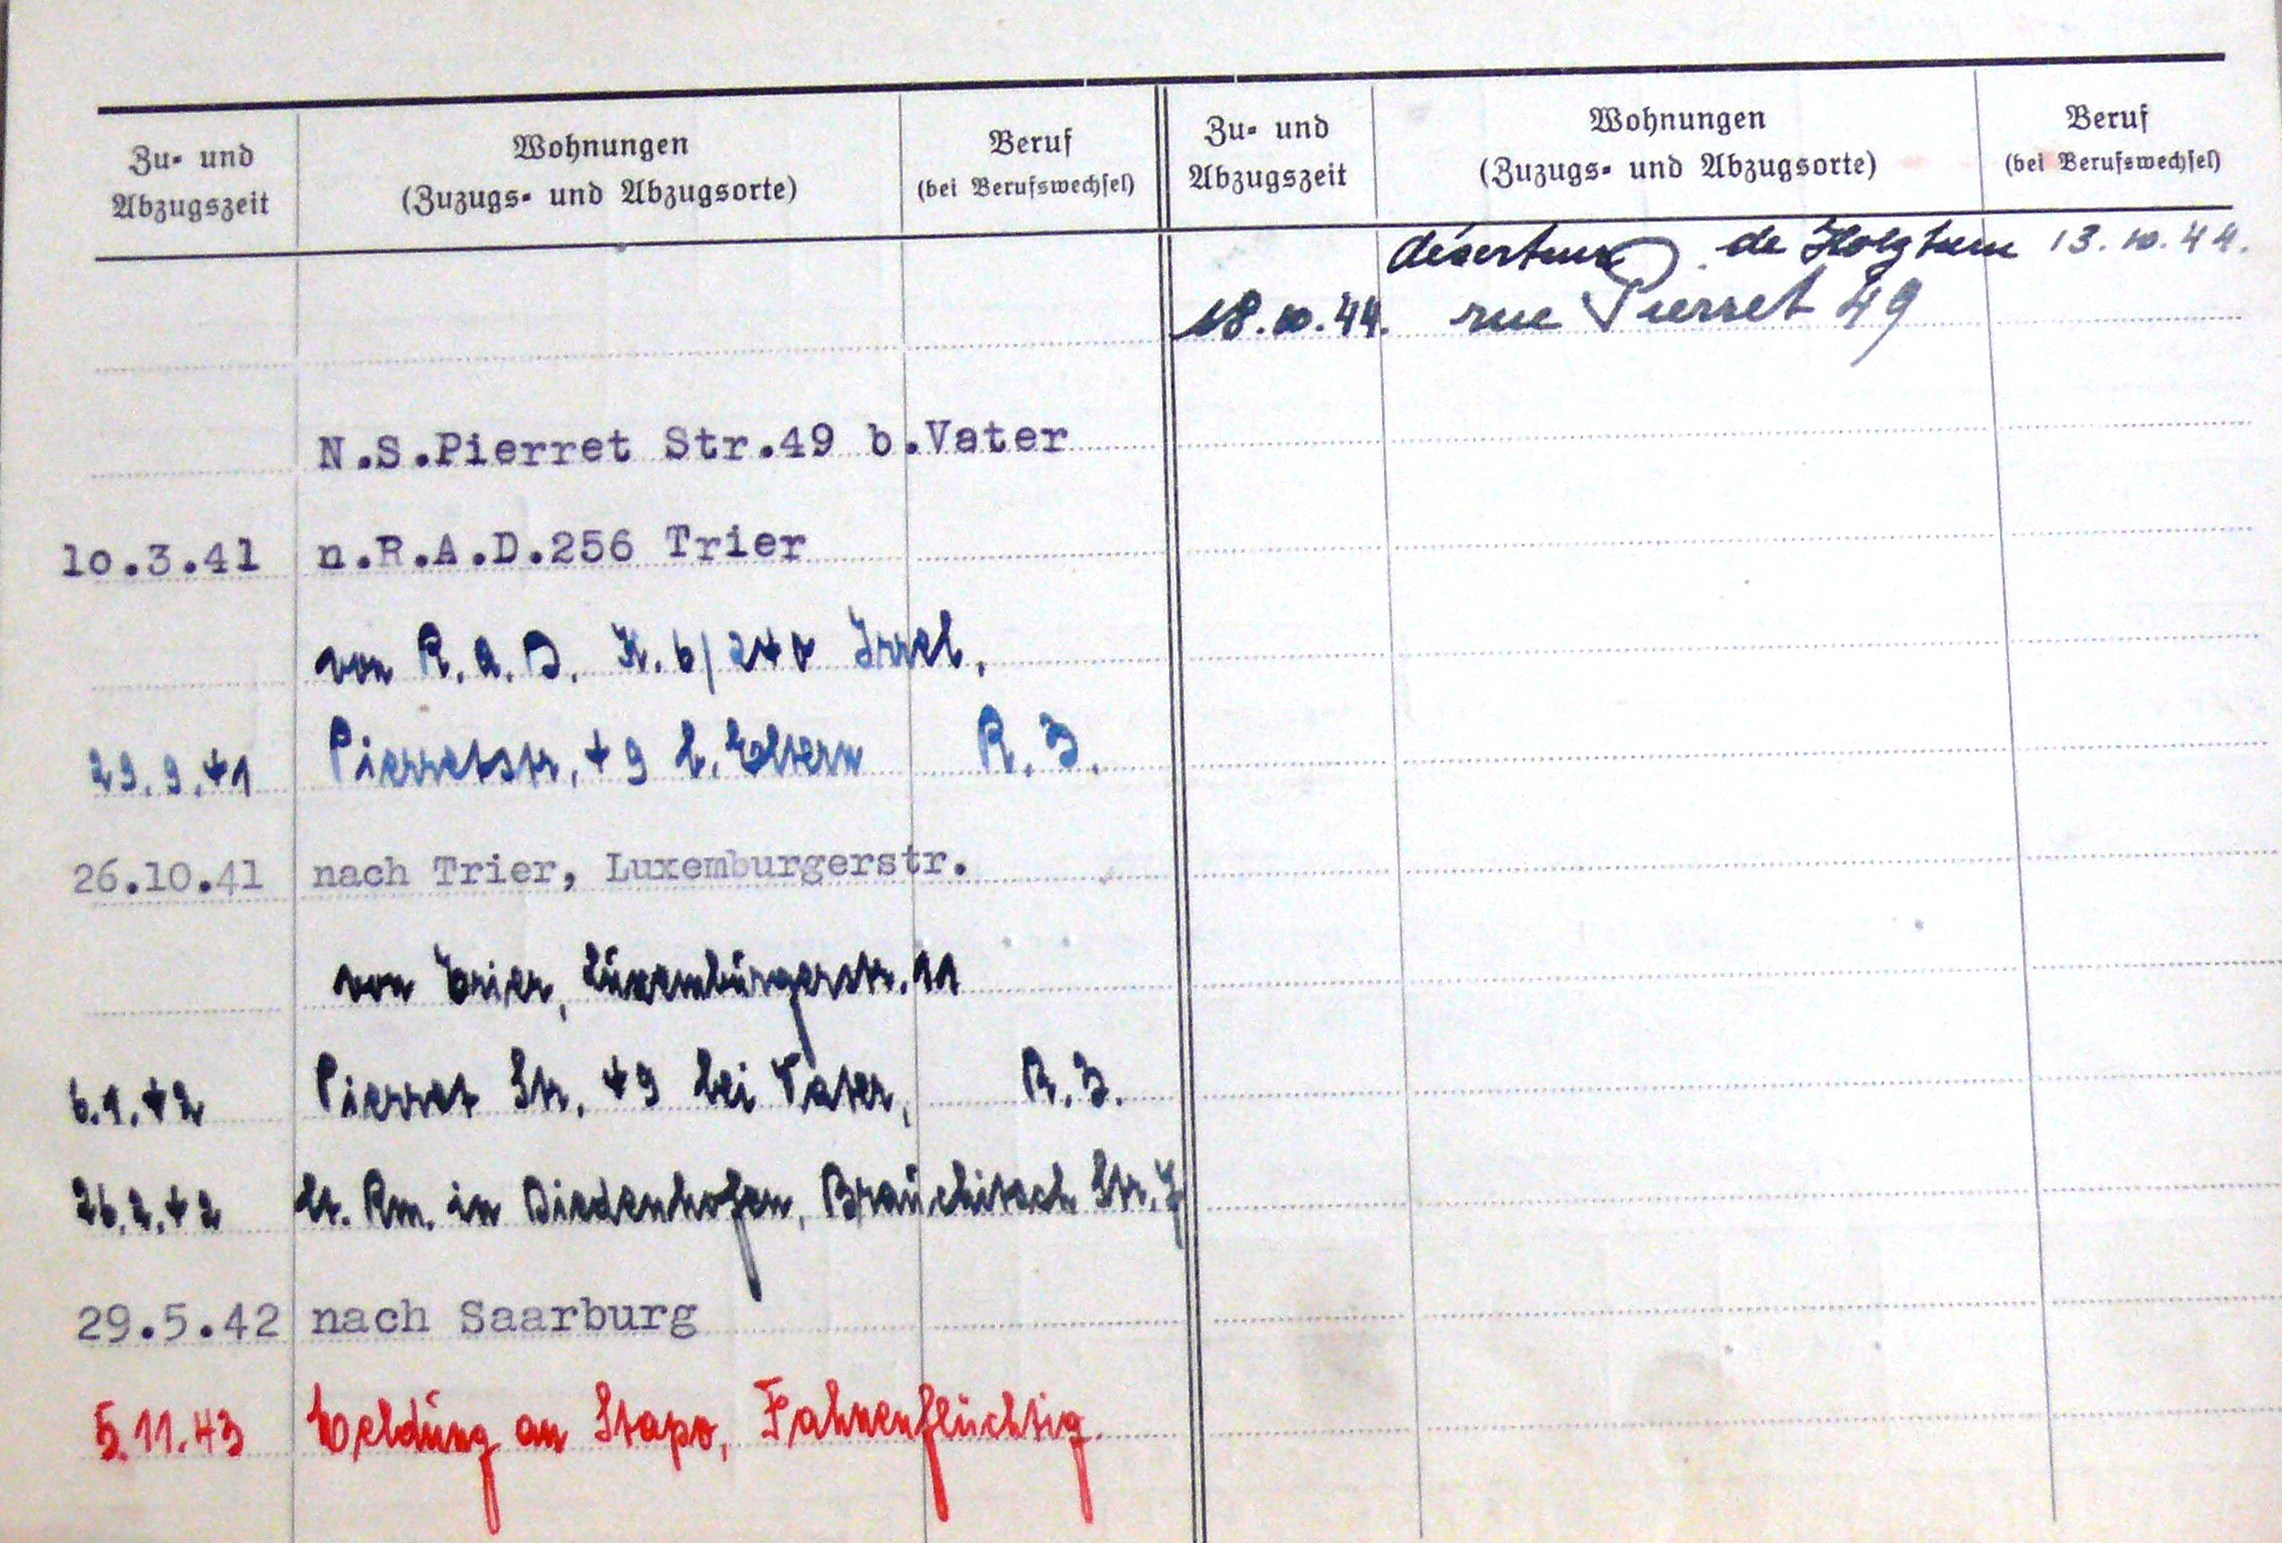 Zu- und Abzugszeit
Wohnungen
(Zuzugs- und Abzugsorte)
Beruf
(bei Berufswechsel)
N.S.Pierret Str.49 b.Vater
10.3.41 n.R.A.D.256 Trier
von R.A.D. K. 6/240 Irrel,
29.9.41 Pierretstr. 49 b. Eltern R.Z.
26.10.41 nach Trier, Luxemburgerstr.
von Trier, Luxemburgerstr. 11
6.1.42 Pierret Str. 49 bei Vater, R.Z.
26.2.42 lt. Rm. in Diedenhofen, Brauchitsch Str. 7
29.5.42 nach Saarburg
5.11.43 Meldung an Stapo, Fahnenflüchtig.
Zu- und Abzugszeit
Wohnungen
(Zuzugs- und Abzugsorte)
Beruf
(bei Berufswechsel)
déserteur de Holzthum 13.10.44.
18.10.44. rue Pierret 49